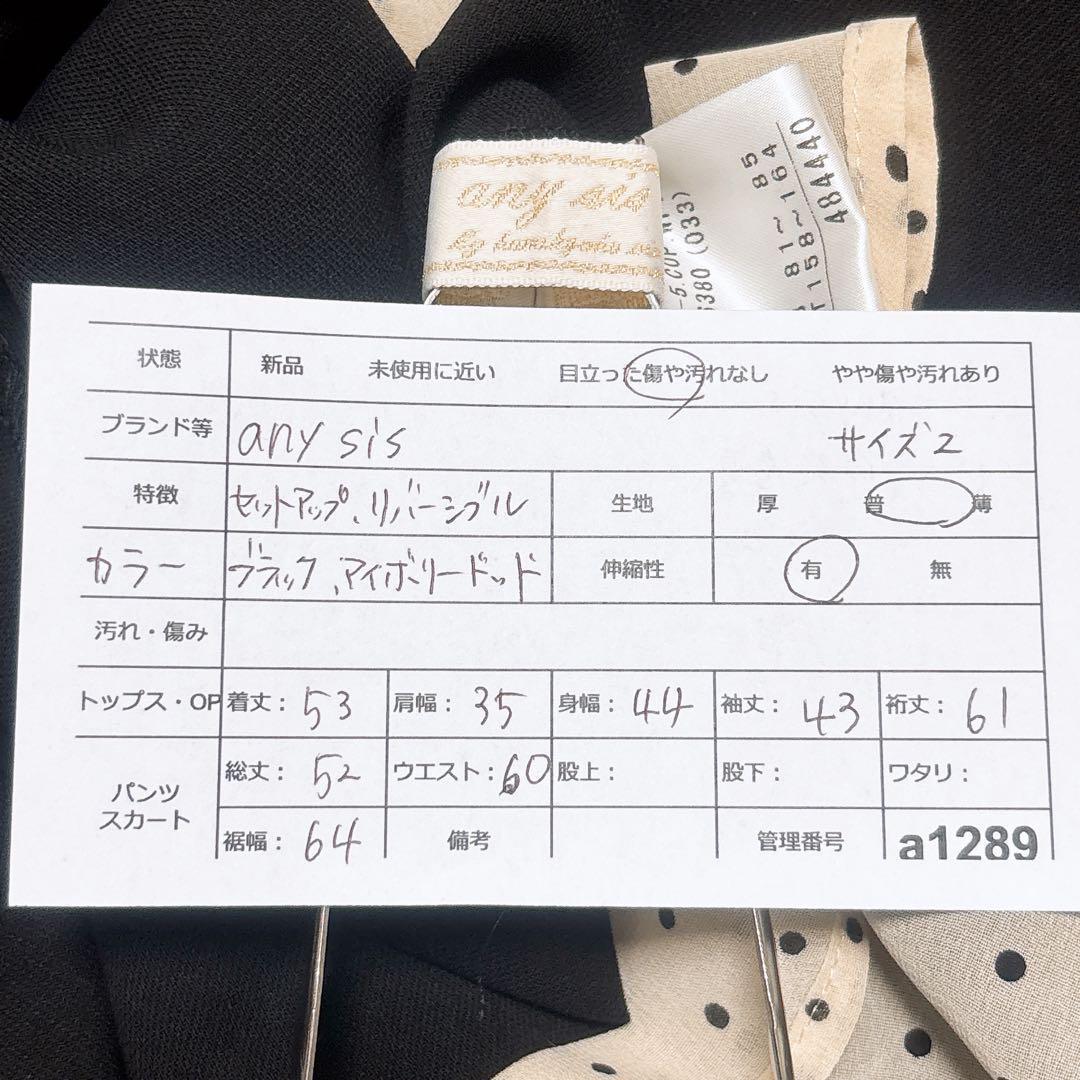 any sis
85
81～
158～164
484440
-5.COP.
6380 (033)
状態 新品 未使用に近い 目立った傷や汚れなし やや傷や汚れあり
ブランド等 any sis サイズ2
特徴 セットアップ、リバーシブル 生地 厚 普 薄
カラー ブラック、アイボリードット 伸縮性 有 無
汚れ・傷み
トップス・OP 着丈：53 肩幅：35 身幅：44 袖丈：43 裄丈：61
パンツ スカート 総丈：52 ウエスト：60 股上： 股下： ワタリ：
裾幅：64 備考 管理番号 a1289